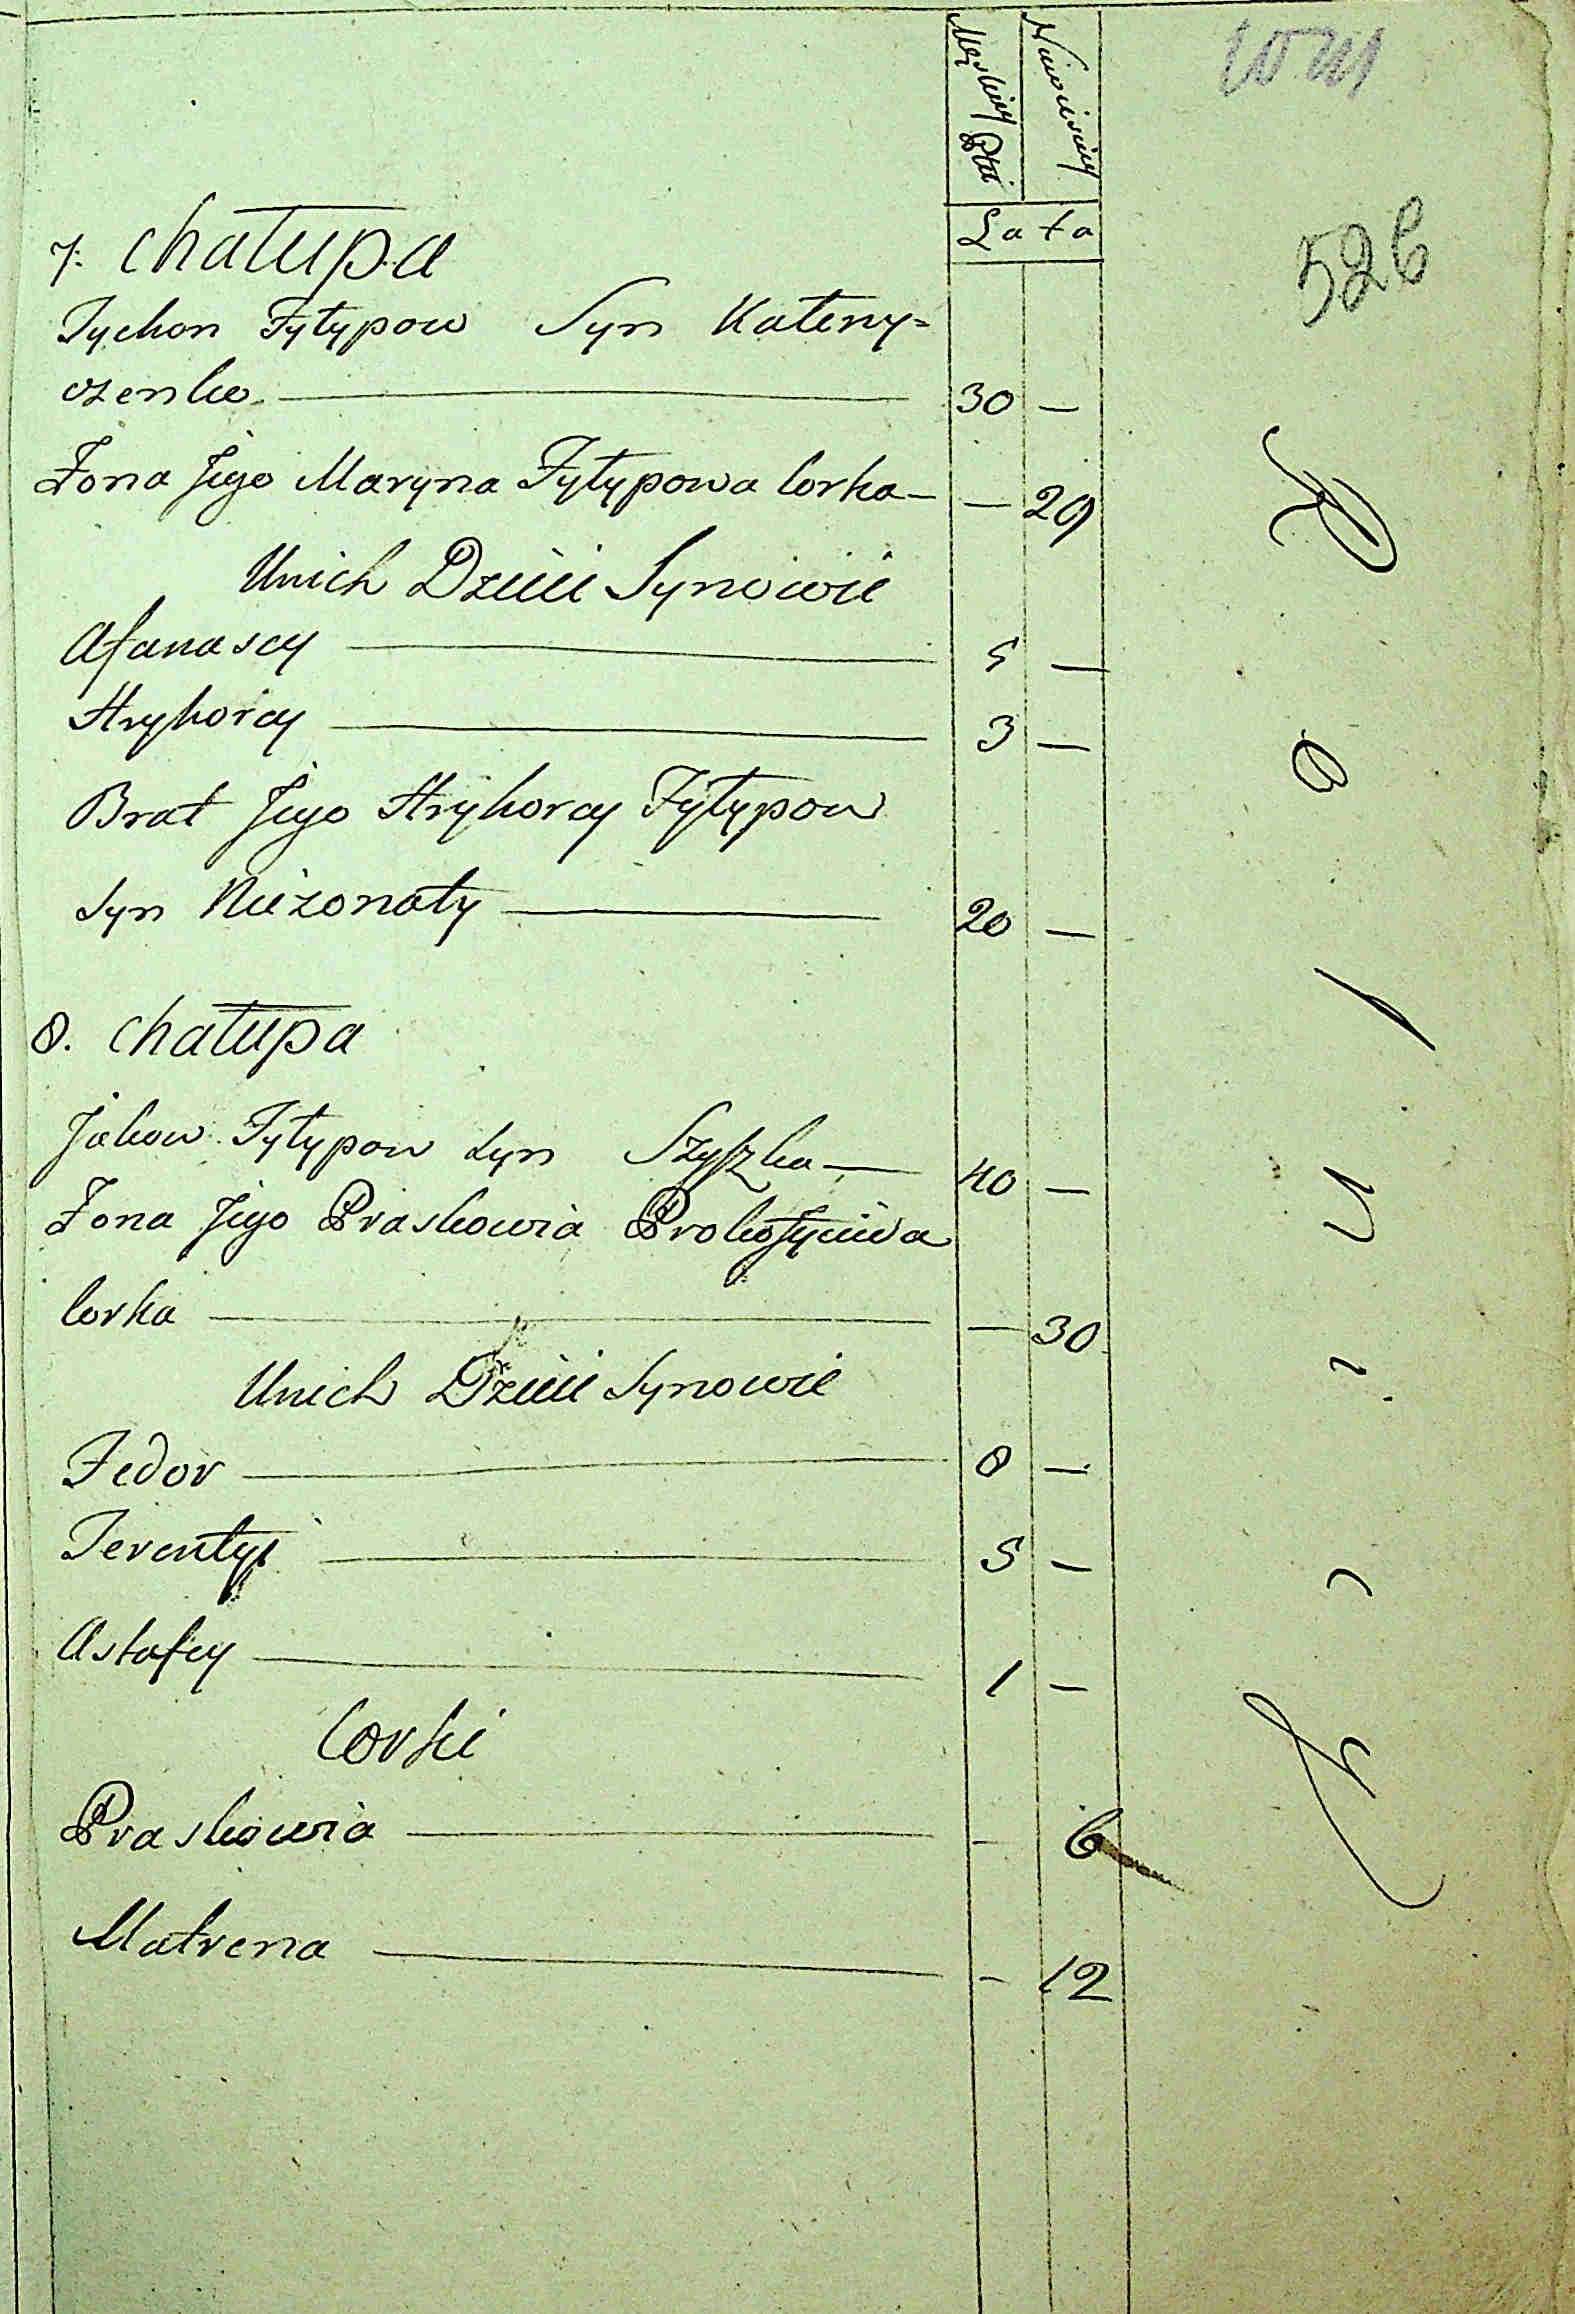 Męskiey Płci
Niewieściey
Lata
526
7. Chałupa
Tychon Fyłypow Syn Kateny-
czenko 30 —
Żona Jego Maryna Fyłypowa Corka — — 29
Unich Dzieci Synowie
Afanasey 5 —
Hryhorey 3 —
Brat Jego Hryhorey Fyłypow
Syn Nieżonaty 20 —
8. Chałupa
Jakow Fyłypow Syn Szyszka — 40 —
Żona Jego Praskowia
Corka — 30
Unich Dzieci Synowie
Fedor 8 —
Terentyi 5 —
Astafey 1 —
Corki
Praskowia — 6
Matrena — 12